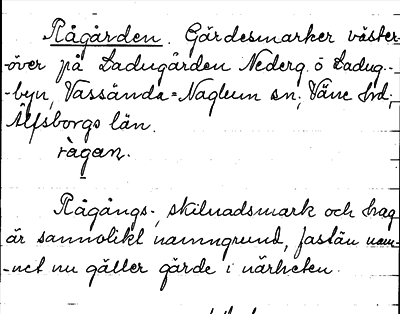 Rågården. Gärdesmarker väster-
-över på Ladugården Nederg. ö Ladug.-
-byn, Vassända-Naglum sn; Väne hd;
Älfsborgs län.
rågan.
Rågångs-, skilnadsmark och hag
är sannolikt namngrund, fastän nam-
-net nu gäller gärde i närheten.